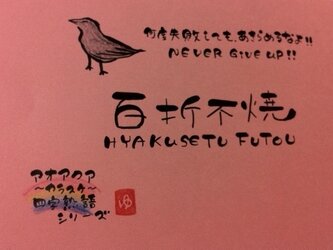 何度失敗しても、あきらめるなよ!!
NEVER GIVE UP!!
百折不焼
HYAKUSETU FUTOU
アオアクア
～カラスケ～
四字熟語
シリーズ
ゆ